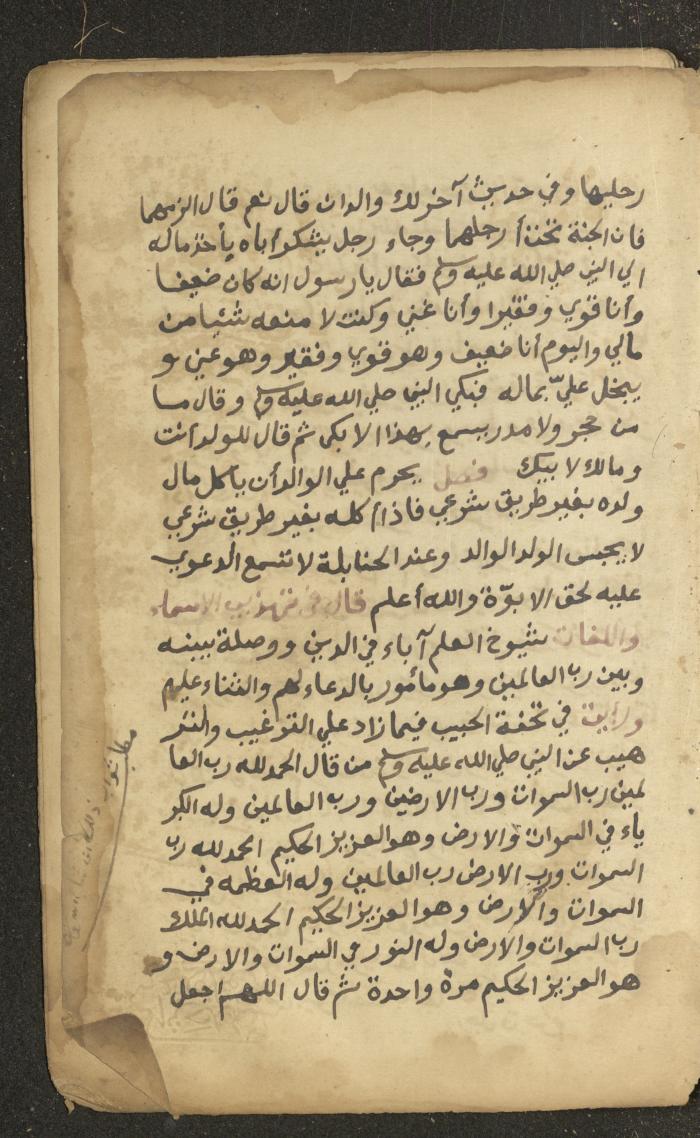 رجليها وفي حديث آخر لك والدان قال نعم قال الزمهما
فان الجنة تحت أرجلهما وجاء رجل يشكو أباه يأخذ ماله
الي النبي صلي الله عليه وسلم فقال يا رسول انه كان ضعيفا
وأنا قوي وفقيرا وأنا غني وكنت لا منعه شئيا من
مالي واليوم أنا ضعيف وهو قوي وفقير وهو غني و
يبخل عليّ بماله فبكي النبي صلي الله عليه وسلم وقال ما
من حجر ولا مدر يسمع بهذا الا بكي ثم قال للولد أنت
ومالك لابيك فصل يحرم علي الوالد أن يأكل مال
ولده بغير طريق شرعي فاذا أكله بغير طريق شرعي
لا يحبس الولد الوالد وعند الحنابلة لا تسمع الدعوي
عليه لحق الابوّة والله أعلم قال في تهذيب الاسماء
واللغات شيوخ العلم آباء في الدين ووصلة بينه
وبين رب العالمين وهو مأمور بالدعاء لهم والثناء عليهم
ورأيت في تحفة الحبيب فيما زاد علي الترغيب والتر
هيب عن النبي صلي الله عليه وسلم من قال الحمد لله رب العا
لمين رب السموات ورب الارضين ورب العالمين وله الكبر
ياء في السموات والارض وهو العزيز الحكيم الحمد لله رب
السموات ورب الارض رب العالمين وله العظمه في
السموات والارض وهو العزيز الحكيم الحمد لله الملك
رب السموات والارض وله النور في السموات والارض و
هو العزيز الحكيم مرة واحدة ثم قال اللهم اجعل